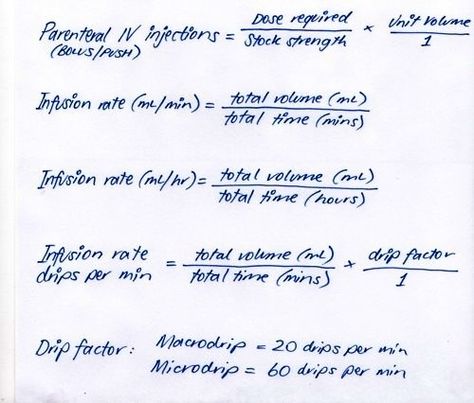 Parenteral IV injections = Dose required / Stock strength × Unit volume / 1
(BOLUS/PUSH)
Infusion rate (mL/min) = total volume (mL) / total time (mins)
Infusion rate (mL/hr) = total volume (mL) / total time (hours)
Infusion rate drips per min = total volume (mL) / total time (mins) × drip factor / 1
Drip factor: Macrodrip = 20 drips per min
Microdrip = 60 drips per min